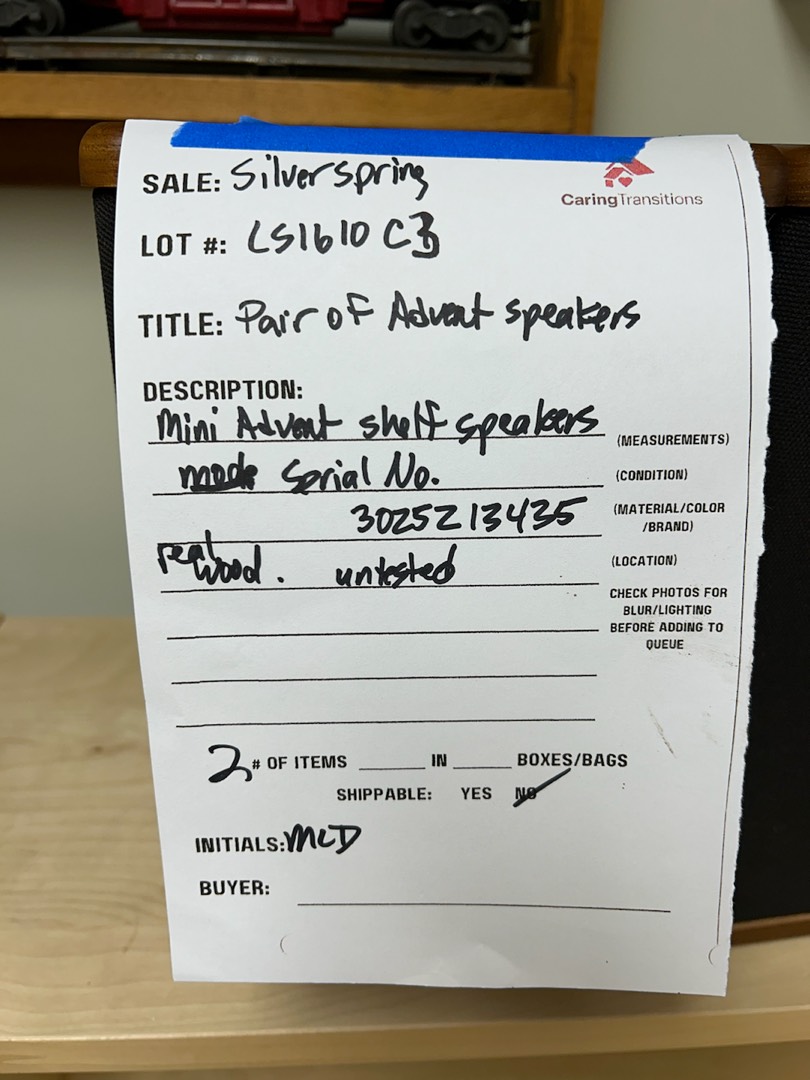 SALE: Silverspring
CaringTransitions
LOT #: LS1610 C3
TITLE: Pair of Advent speakers
DESCRIPTION:
Mini Advent shelf speakers
(MEASUREMENTS)
Serial No.
(CONDITION)
3025213435
(MATERIAL/COLOR
/BRAND)
real wood. untested
(LOCATION)
CHECK PHOTOS FOR
BLUR/LIGHTING
BEFORE ADDING TO
QUEUE
2 # OF ITEMS ______ IN ______ BOXES/BAGS
SHIPPABLE: YES NO
INITIALS: MCD
BUYER: